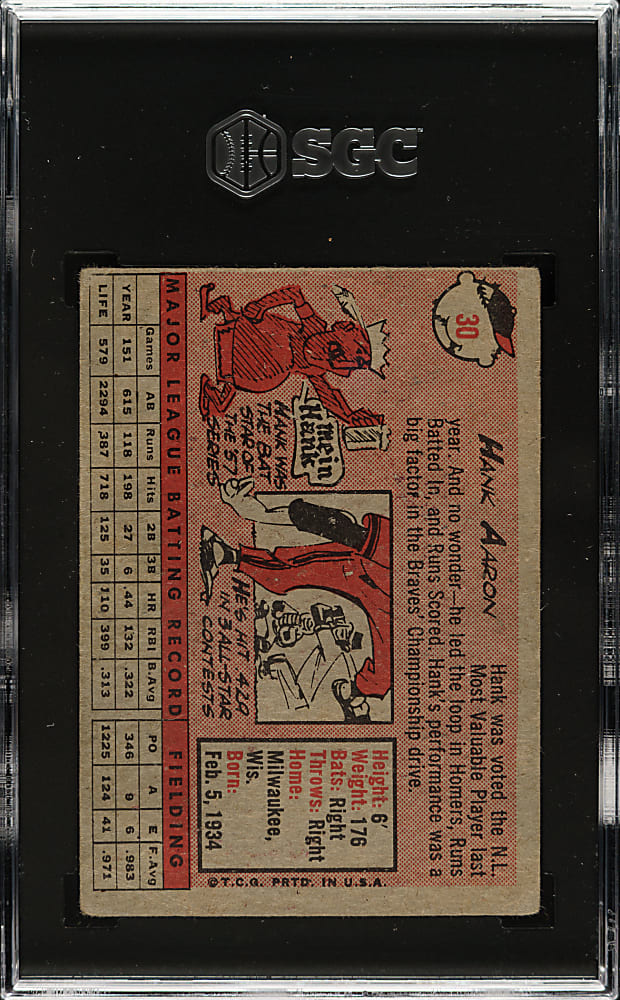 SGC
30
HANK AARON
Hank was voted the N.L.
Most Valuable Player last
year. And no wonder—he led the loop in Homers, Runs
Batted In, and Runs Scored. Hank's performance was a
big factor in the Braves' Championship drive.
mein
Hank
HANK WAS
THE BAT
STAR OF
THE '57
SERIES
HE'S HIT .429
IN 3 ALL-STAR
CONTESTS
Height: 6'
Weight: 176
Bats: Right
Throws: Right
Home:
Milwaukee,
Wis.
Born:
Feb. 5, 1934
©T.C.G. PRTD. IN U.S.A.
MAJOR LEAGUE BATTING RECORD FIELDING
Games AB Runs Hits 2B 3B HR RBI B.Avg PO A E F.Avg
YEAR 151 615 118 198 27 6 .44 132 .322 346 9 6 .983
LIFE 579 2294 387 718 125 35 110 399 .313 1225 124 41 .971